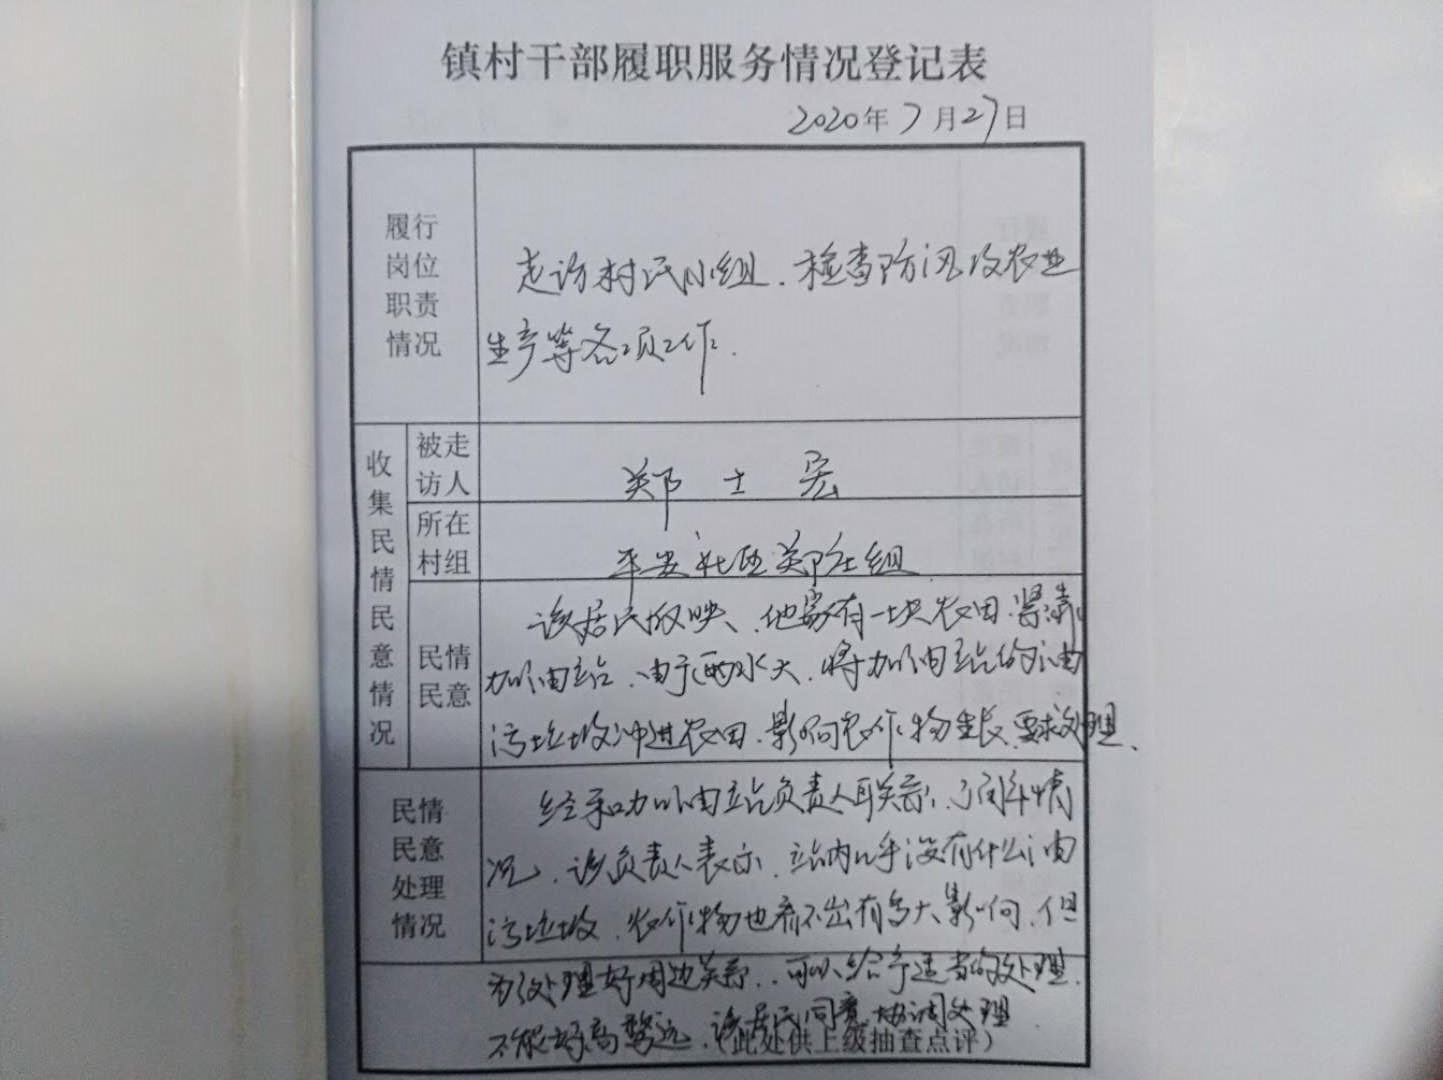 镇村干部履职服务情况登记表
2020年7月27日
履行
岗位
职责
情况
走访村民小组、检查防汛及农业
生产等各项工作.
收集民情民意情况
被走
访人
郑士宏
所在
村组
平安社区郑庄组
民情
民意
该居民反映、他家有一块农田紧靠
加油站、由于雨水大、将加油站的油
污垃圾冲进农田、影响农作物生长、要求处理、
民情
民意
处理
情况
经和加油站负责人联系、了解情
况、该负责人表示、站内几乎没有什么油
污垃圾、农作物也看不出有多大影响、但
为了处理好周边关系、可以给予适当的处理、
不能好高骛远、该居民同意协调处理
(此处供上级抽查点评)